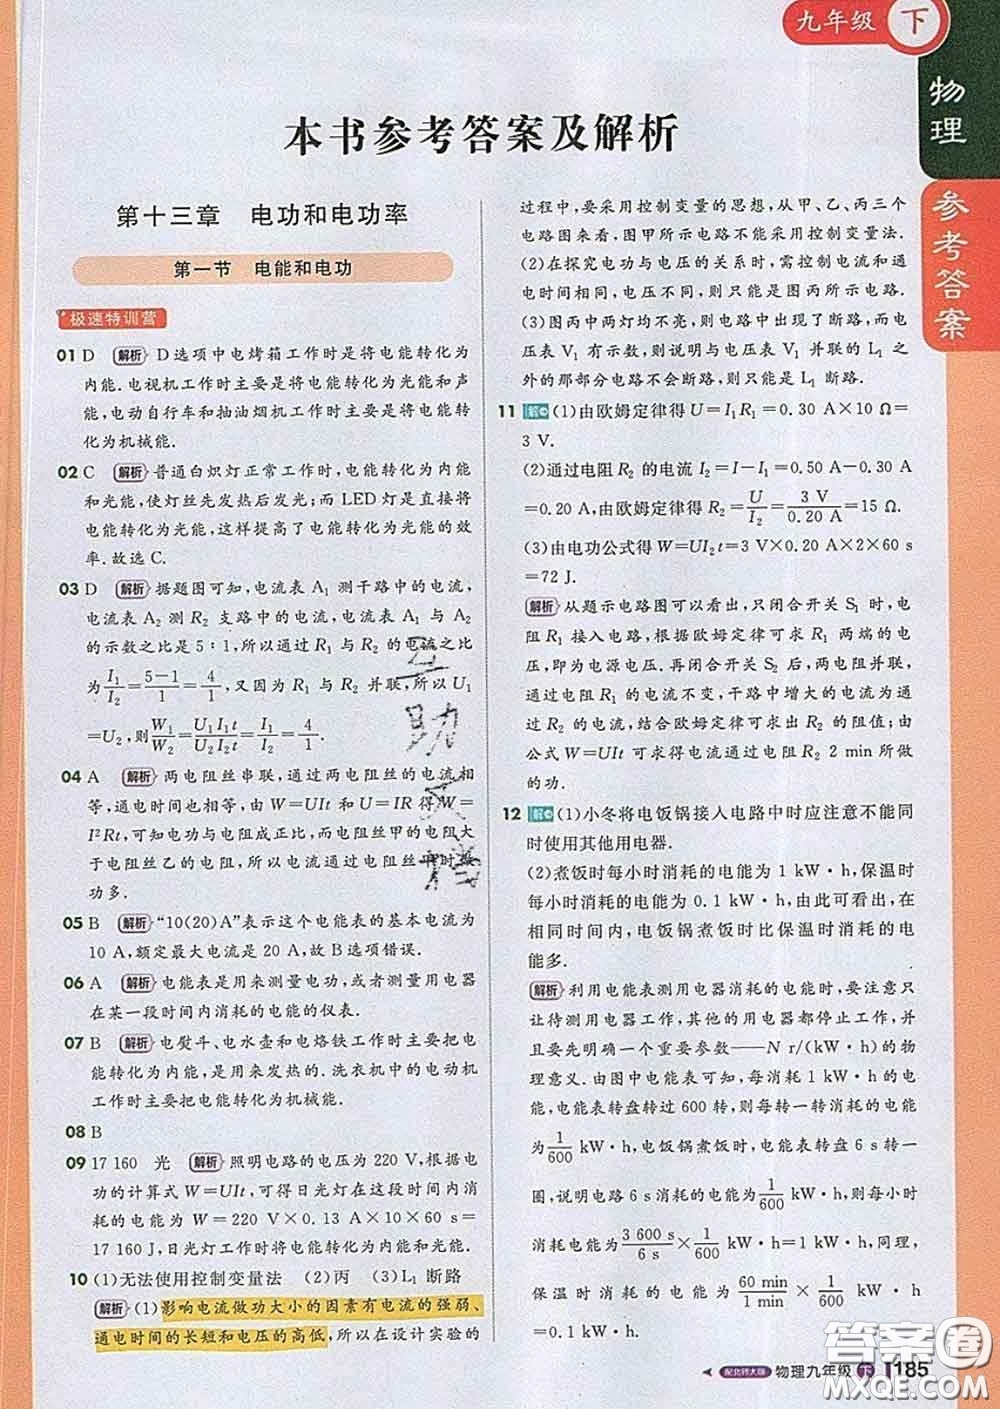 九年级 下
物理
参考答案
本书参考答案及解析
第十三章 电功和电功率
第一节 电能和电功
极速特训营
01 D 解析 D选项中电烤箱工作时是将电能转化为
内能.电视机工作时主要是将电能转化为光能和声
能,电动自行车和抽油烟机工作时主要是将电能转
化为机械能.
02 C 解析 普通白炽灯正常工作时,电能转化为内能
和光能,使灯丝先发热后发光;而 LED 灯是直接将
电能转化为光能,这样提高了电能转化为光能的效
率.故选C.
03 D 解析 据题图可知,电流表 A₁ 测干路中的电流,
电流表 A₂ 测 R₂ 支路中的电流,电流表 A₁ 与 A₂
的示数之比是 5∶1,所以通过 R₁ 与 R₂ 的电流之比
为 I₁/I₂ = (5−1)/1 = 4/1,又因为 R₁ 与 R₂ 并联,所以 U₁
=U₂,则 W₁/W₂ = U₁I₁t/U₂I₂t = I₁/I₂ = 4/1.
04 A 解析 两电阻丝串联,通过两电阻丝的电流相
等,通电时间也相等,由 W=UIt 和 U=IR 得 W=
I²Rt,可知电功与电阻成正比,而电阻丝甲的电阻大
于电阻丝乙的电阻,所以电流通过电阻丝甲时做
功多.
05 B 解析 “10(20)A”表示这个电能表的基本电流为
10 A,额定最大电流是 20 A,故 B 选项错误.
06 A 解析 电能表是用来测量电功,或者测量用电器
在某一段时间内消耗的电能的仪表.
07 B 解析 电熨斗、电水壶和电烙铁工作时主要把电
能转化为内能,是用来发热的.洗衣机中的电动机
工作时主要把电能转化为机械能.
08 B
09 17 160 光 解析 照明电路的电压为 220 V,根据电
功的计算式 W=UIt,可得日光灯在这段时间内消
耗的电能为 W=220 V×0.13 A×10×60 s=
17 160 J,日光灯工作时将电能转化为内能和光能.
10 (1)无法使用控制变量法 (2)丙 (3)L₁ 断路
解析 (1)影响电流做功大小的因素有电流的强弱、
通电时间的长短和电压的高低,所以在设计实验的
过程中,要采用控制变量的思想,从甲、乙、丙三个
电路图来看,图甲所示电路不能采用控制变量法.
(2)在探究电功与电压的关系时,需控制电流和通
电时间相同,电压不同,只能是图丙所示电路.
(3)图丙中两灯均不亮,则电路中出现了断路,而电
压表 V₁ 有示数,则说明与电压表 V₁ 并联的 L₁ 之
外的那部分电路不会断路,则只能是 L₁ 断路.
11 解 (1)由欧姆定律得 U=I₁R₁=0.30 A×10 Ω=
3 V.
(2)通过电阻 R₂ 的电流 I₂=I−I₁=0.50 A−0.30 A
=0.20 A,由欧姆定律得 R₂ = U/I₂ = 3 V/0.20 A = 15 Ω.
(3)由电功公式得 W=UI₂t=3 V×0.20 A×2×60 s
=72 J.
解析 从题示电路图可以看出,只闭合开关 S₁ 时,电
阻 R₁ 接入电路,根据欧姆定律可求 R₁ 两端的电
压,即为电源电压.再闭合开关 S₂ 后,两电阻并联,
通过电阻 R₁ 的电流不变,干路中增大的电流为通
过 R₂ 的电流,结合欧姆定律可求出 R₂ 的阻值;由
公式 W=UIt 可求得电流通过电阻 R₂ 2 min 所做
的功.
12 解 (1)小冬将电饭锅接入电路中时应注意不能同
时使用其他用电器.
(2)煮饭时每小时消耗的电能为 1 kW·h,保温时
每小时消耗的电能为 0.1 kW·h.由此可看出,在
相同时间内,电饭锅煮饭时比保温时消耗的电
能多.
解析 利用电能表测用电器消耗的电能时,要注意只
让待测用电器工作,其他的用电器都停止工作,并
且要先搞明白一个重要参数——N r/(kW·h)的物
理意义.由图中电能表可知,每消耗 1 kW·h 的电
能,电能表转盘转过 600 转,则每转一转消耗的电能
为 1/600 kW·h,电饭锅煮饭时,电能表转盘 6 s 转一
圈,说明电饭锅 6 s 消耗的电能为 1/600 kW·h,则每小时
消耗电能为 3 600 s/6 s × 1/600 kW·h=1 kW·h.同理,
保温时每小时消耗的电能为 60 min/1 min × 1/600 kW·h
=0.1 kW·h.
配北师大版 物理九年级 下 185
答案圈
MXQE.COM